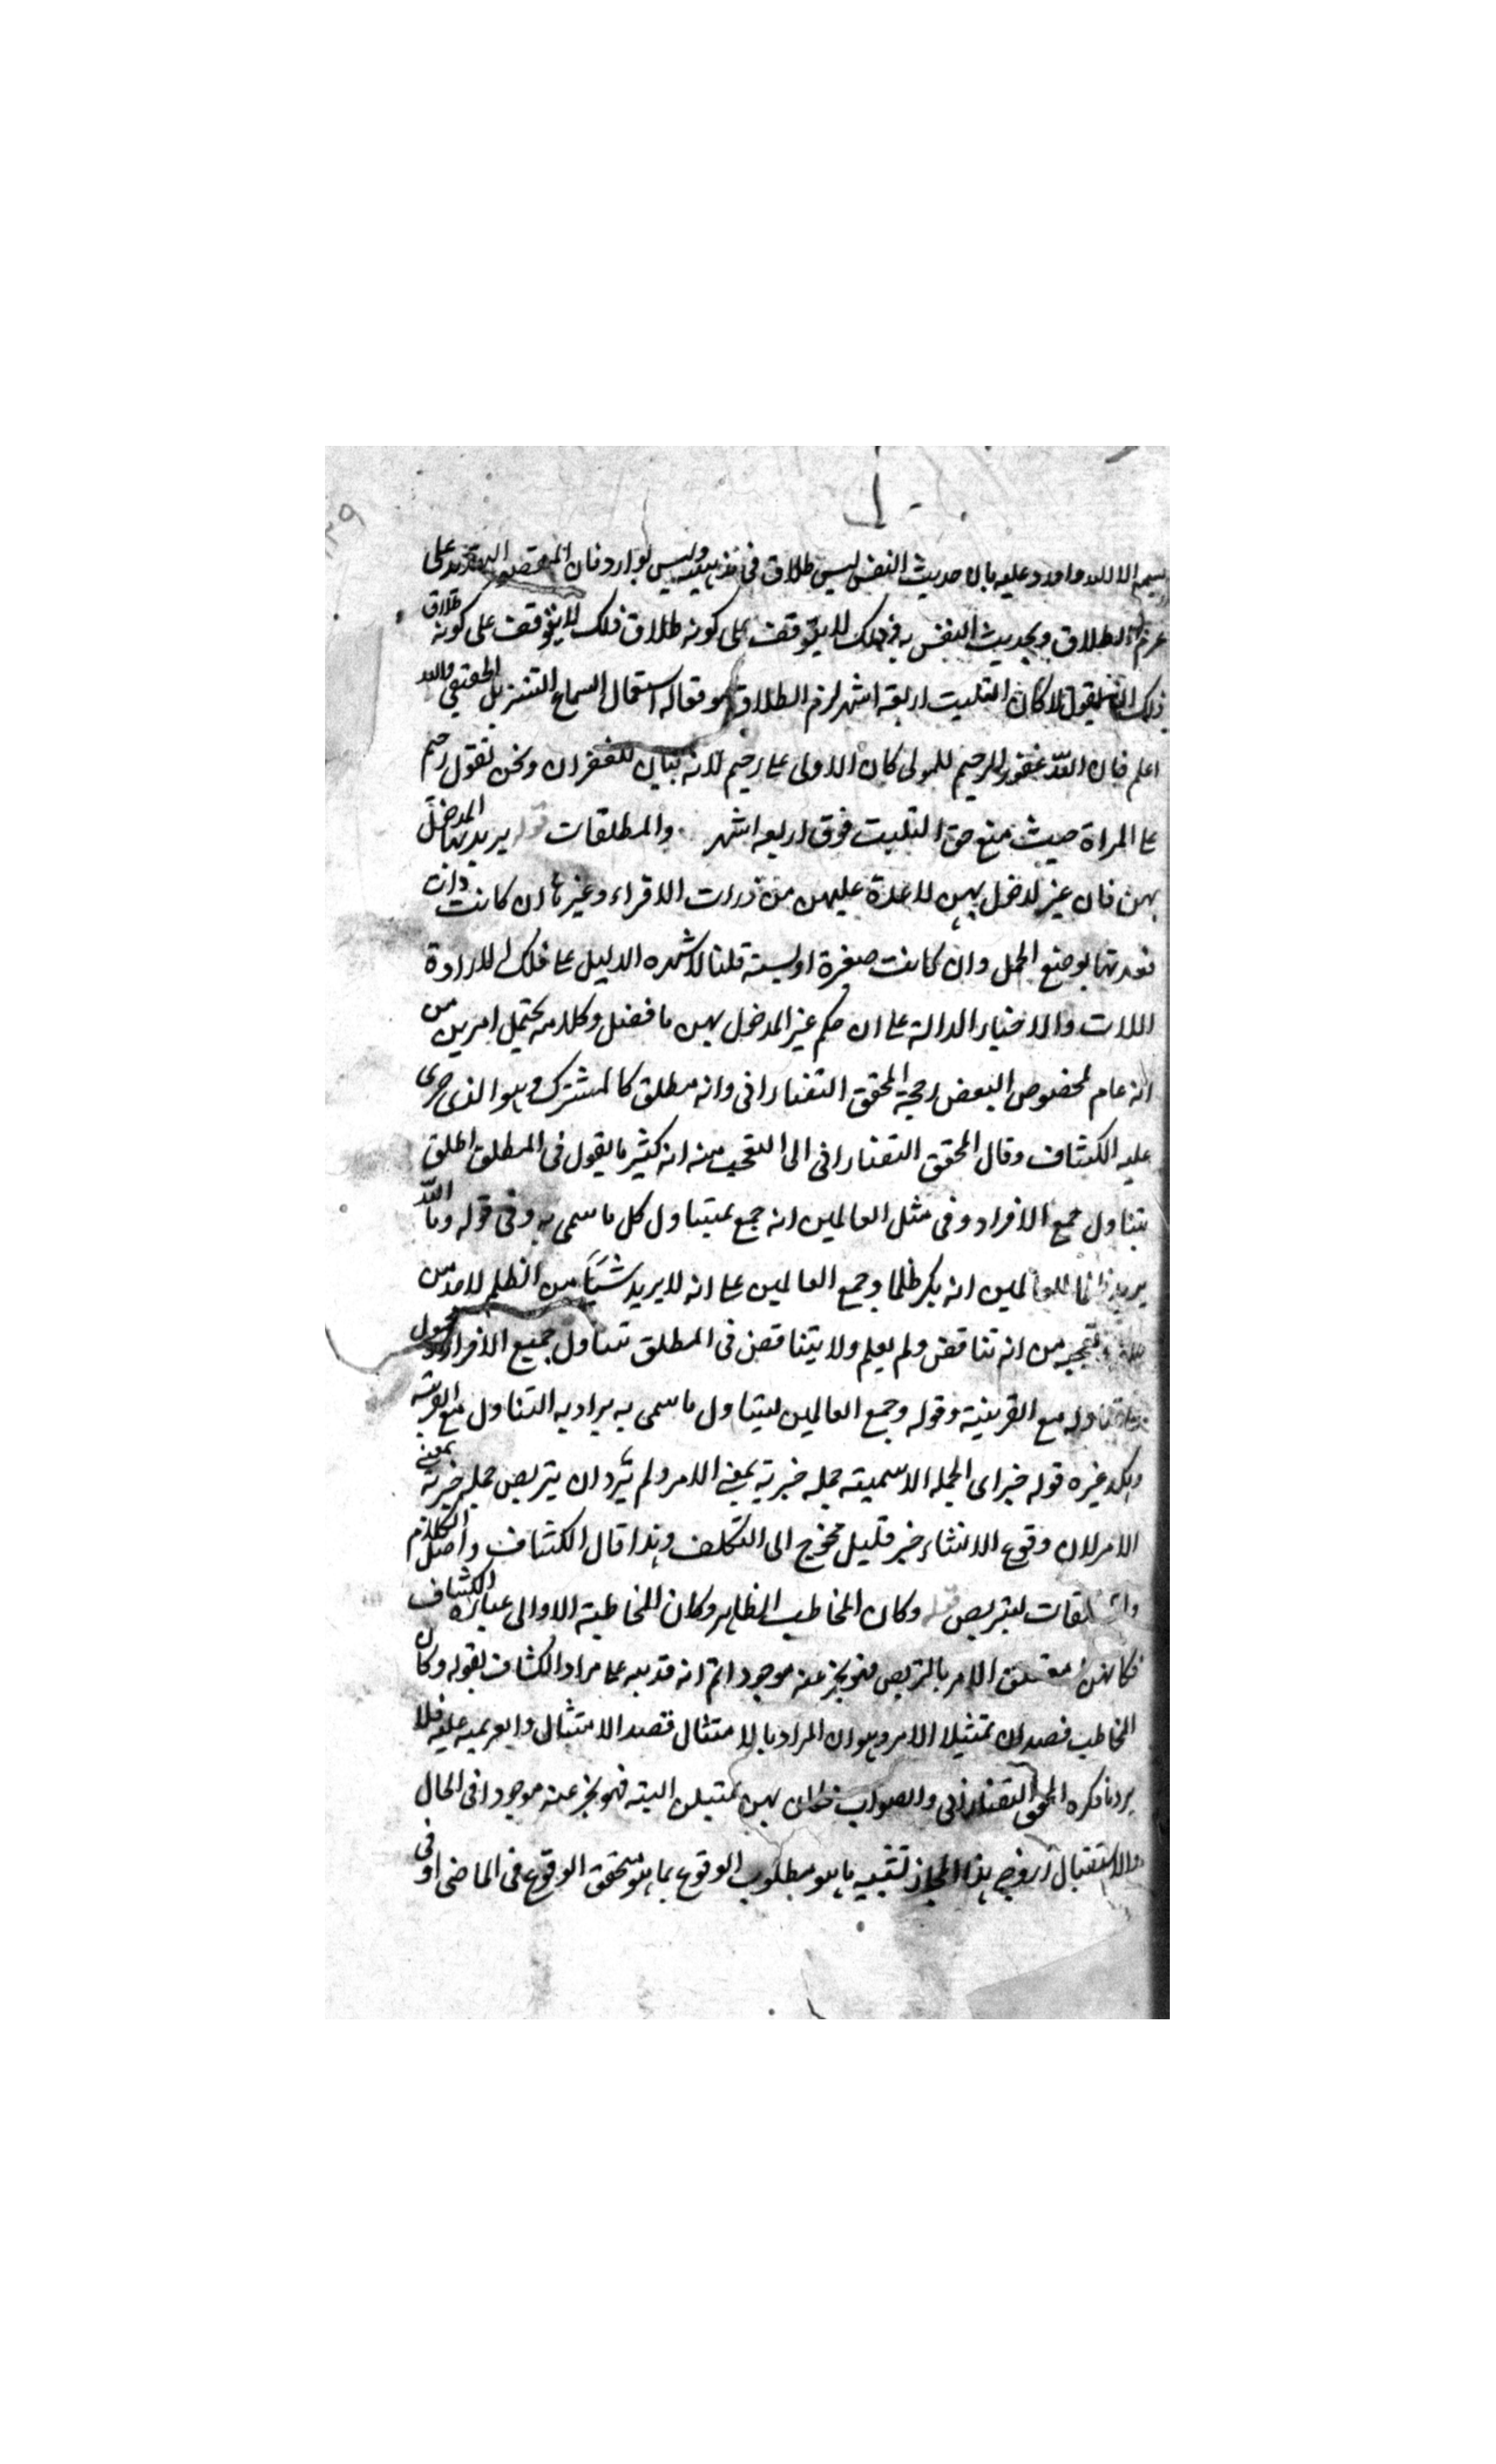 يسمع الا الله واورد عليه بان حديث النفس ليس طلاق في مذهبه وليس بوارد فان المقصود التهديد على
عزم الطلاق وبحديث النفس به وذلك لا يتوقف على كونه طلاق فلك لا يتوقف على كونه طلاق
ذلك ان يقول لما كان التلبث اربعة اشهر لزم الطلاق هو مقاله استعمال السماع التنزيل الحقيقي والله
اعلم فان الله غفور رحيم للمولى كان الاولى على رحيم لانه بيان للغفران ونحن نقول رحيم
على المراة حيث منع حق التلبث فوق اربعة اشهر والمطلقات قوله يريد بها المدخل
بهن فان غير لدخل بهن لا عدة عليهن من ذوات الاقراء وغيرها ان كانت ذات
فعدتها بوضع الحمل وان كانت صغيرة او يسة قلنا لاشهره الدليل على ذلك الارادة
اللات والاخبار الدالة على ان حكم غير المدخول بهن ما فضل وكلامه يحتمل امرين من
انه عام لمخصوص البعض رجحه المحقق التفتازاني وانه مطلق كالمشترك وهو الذي جرى
عليه الكشاف وقال المحقق التفتازاني الى التعجب منه انه كثير ما يقول في المطلق اطلق
يتناول جمع الافراد وفي مثل العالمين انه جمع ليتناول كل ما سمى به وفي قوله وما الله
يريد ظلما للعالمين انه نكر ظلما وجمع العالمين على انه لا يريد شيئا من الظلم لاحد من
تعجبه من انه تناقض ولم يعلم ولا يتناقض في المطلق تناول جميع الافراد
تناوله مع القرينة وقوله وجمع العالمين ليتناول ما سمى به يراد به التناول مع القرينة
وهكذ غيره قوله خبر اي الجملة الاسمية جملة خبرية بمعنى الامر ولم يرد ان يتربص جملة خبرية بمعنى
الامر لان وقوع الانشاء خبر قليل محوج الى التكلف وهذا قال الكشاف واصل الكلام
والمطلقات ليتربص قوله وكان المخاطب الظاهر وكان المخاطبة الاوالى عبارة الكشاف
فكانهن متعلق الامر بالتربص فهو يخبر عنه موجودا ثم انه قد نبه على مراد الكشاف بقوله وكان
المخاطب قصد ان تمتثلا الامر وهو ان المراد بالامتثال قصد الامتثال عليه فلا
يرد ما ذكره المحقق التفتازاني والصواب بهن يمتثلن البتة فهو يخبر عنه موجودا في الحال
والاستقبال هذا المجاز تشبيه ما هو مطلوب الوقوع بما هو متحقق الوقوع في الماضي او في